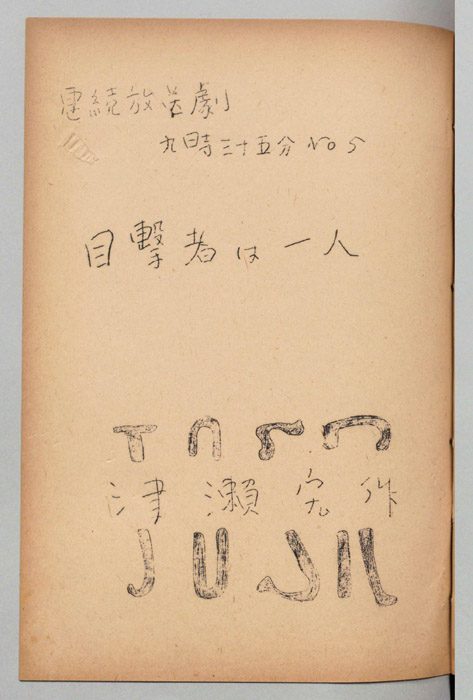 連続放送劇
九時三十五分 No 5
目撃者は一人
津瀬宏作